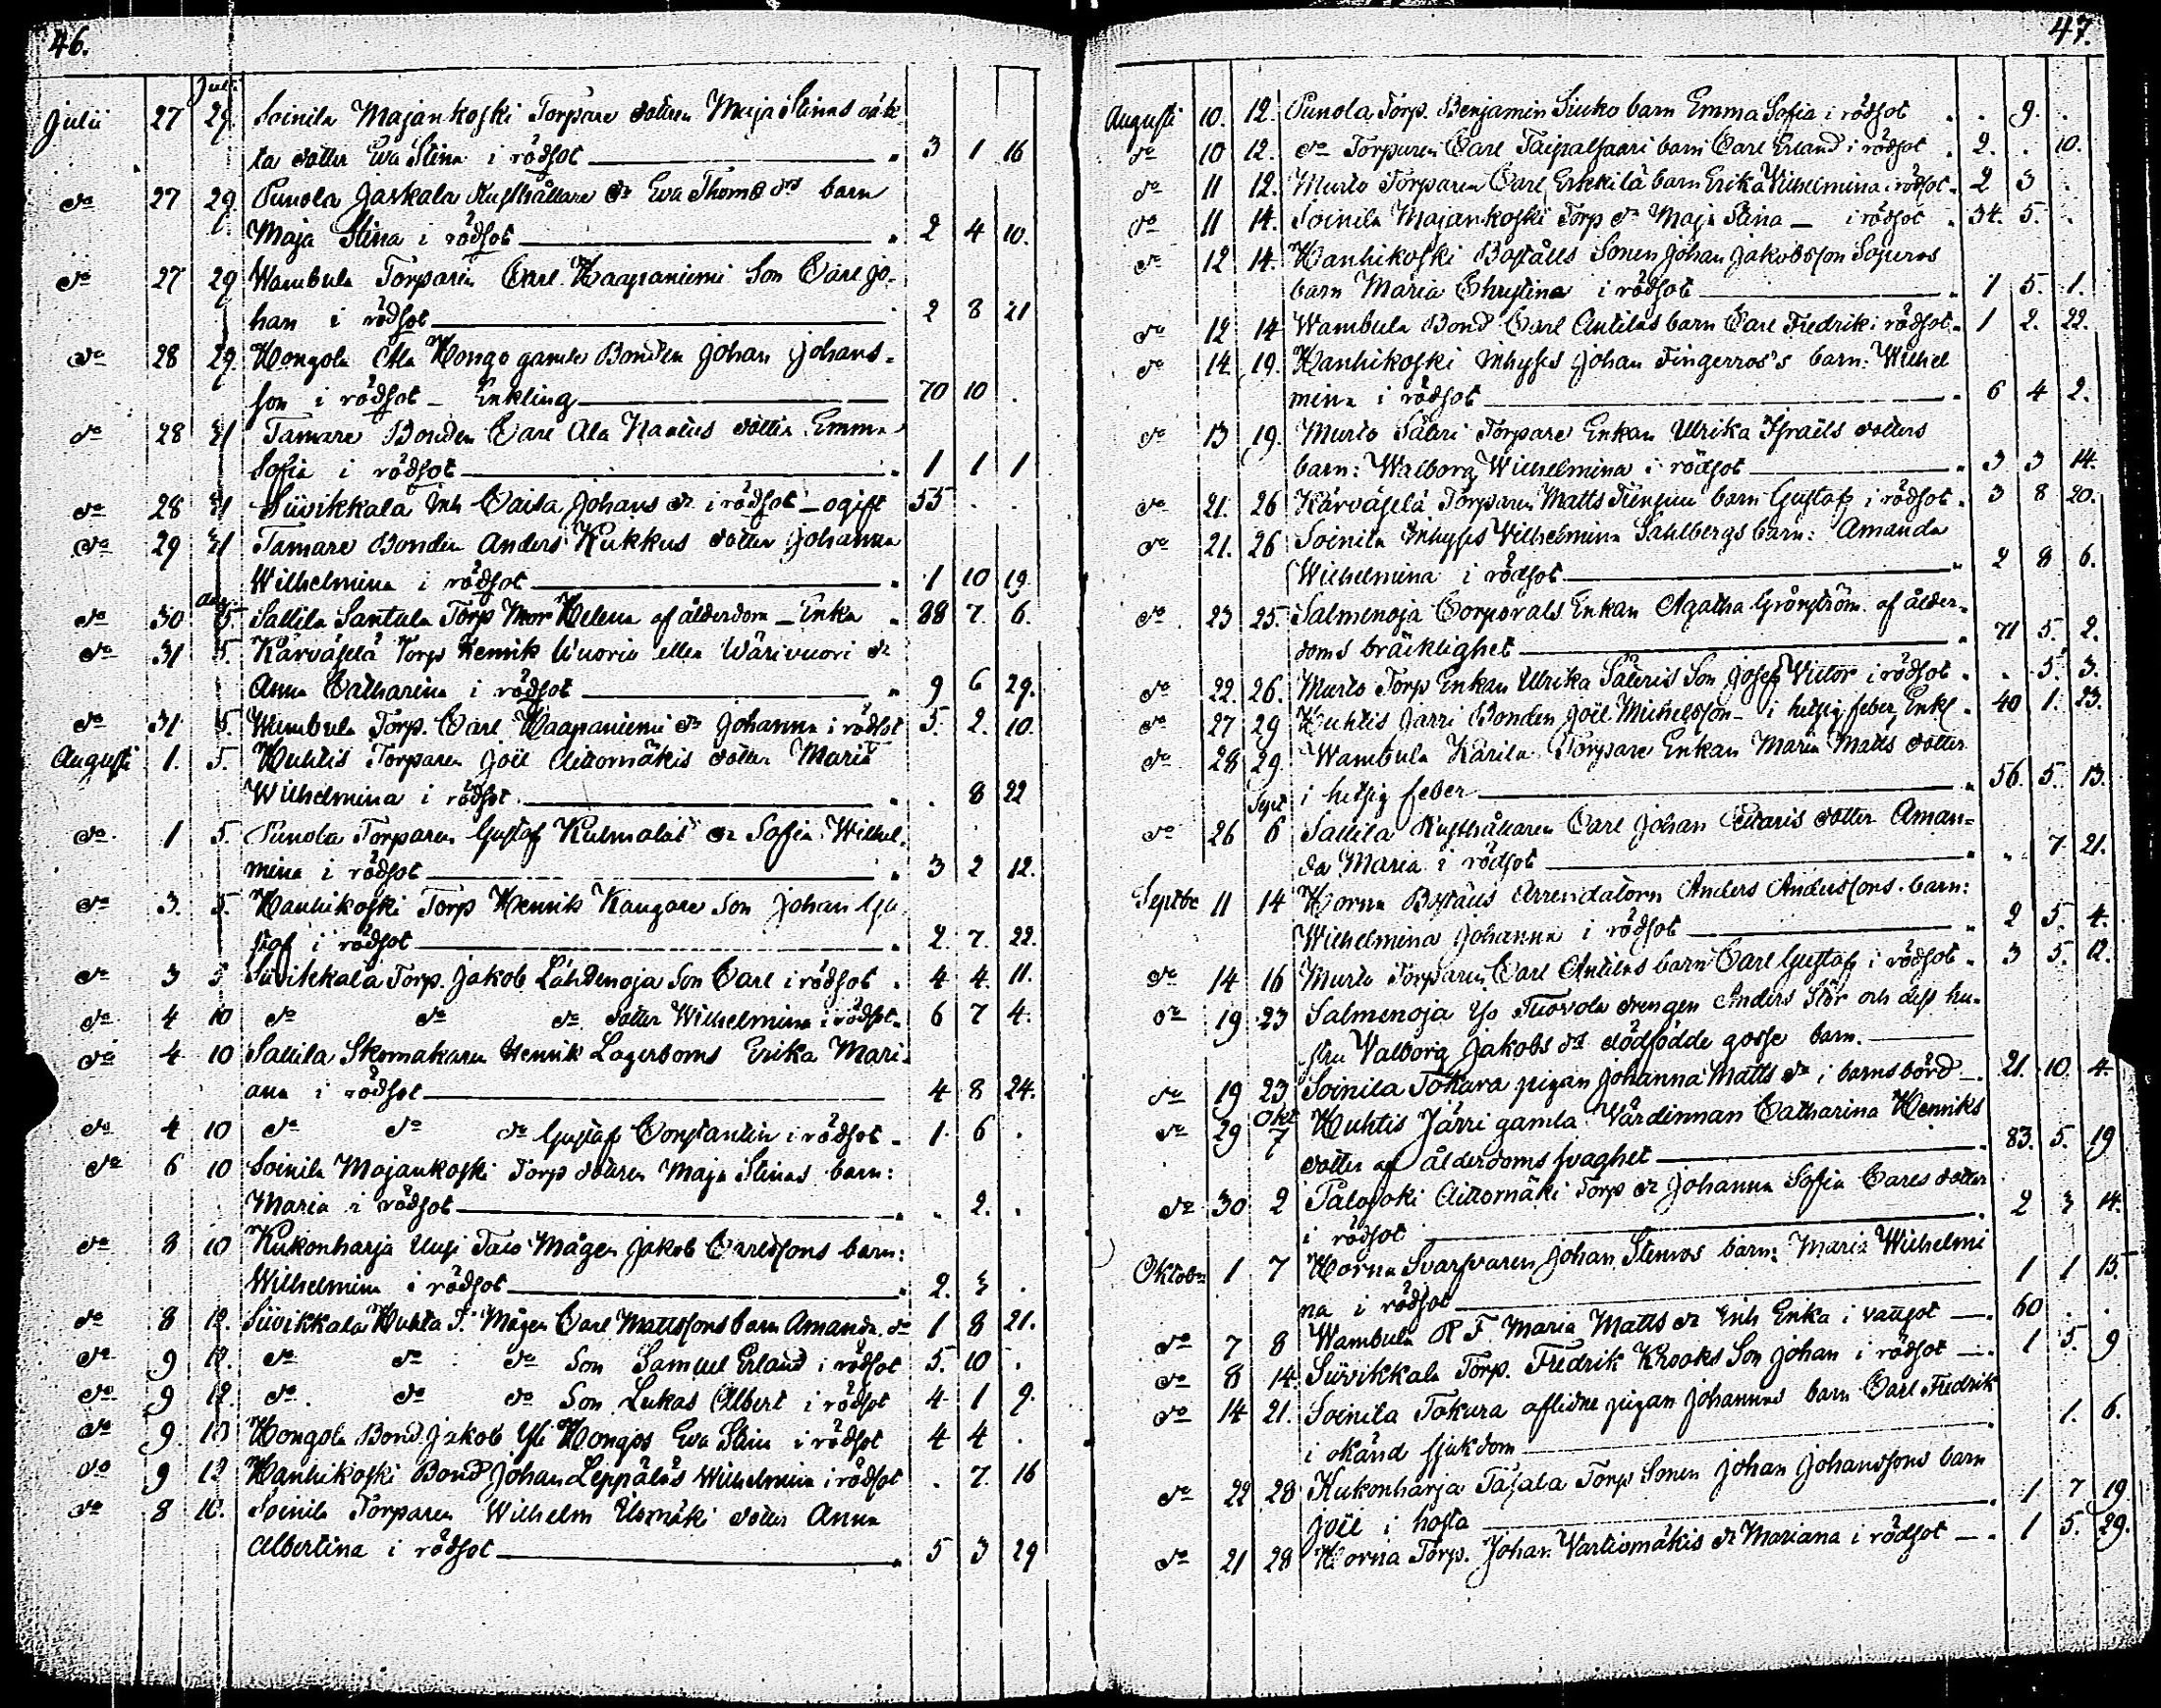 46.
Juli
Julii 27 29 Soinila Majankoski Torpare dottren Maja Stinas oäk-
ta dotter Eva Stina i rödsot 3 1 16
do 27 29. Punola Jaskala Rusthållare dr Eva Thoms dr barn
Maja Stina i rödsot 2 4 10.
do 27 29 Wambula Torparen Carl Haapaniemi Son Carl Jo-
han i rödsot 2 8 21
do 28 29. Hongola Ala Hongo gamle Bonden Johan Johans-
son i rödsot - Enkling 70 10 .
do 28 31 Tamare Bonden Carl Ala Nautus dotter Emma
Sofia i rödsot 1 1 1
do 28 31 Siivikkala Inh Caisa Johans dr i rödsot - ogift 55 . .
do 29 31 Tamare Bonden Anders Kukkus dotter Johanna
Wilhelmina i rödsot 1 10 19.
Aug
do 30 5. Sallila Santula Torp Mor Helena af ålderdom - Enka 88 7. 6.
do 31 5. Kärväselä Torp Henrik Wuorio eller Wärivuori dr
Anna Catharina i rödsot 9 6 29.
do 31 5. Wambula Torp. Carl Haapaniemi dr Johanna i rödsot 5. 2. 10.
Augusti 1. 5. Huhtis Torparen Joël Aittomäkis dotter Maria
Wilhelmina i rödsot . 8 22
do 1 5. Punola Torparen Gustaf Kulmalas dr Sofia Wilhel-
mina i rödsot 3 2 12.
do 3. 5. Hanhikoski Torp Henrik Kangars Son Johan Gu
staf i rödsot 2. 7. 22.
do 3 5 Siivikkala Torp. Jakob Lähdenoja Son Carl i rödsot 4 4. 11.
do 4 10 do do do dotter Wilhelmina i rödsot 6 7 4.
do 4 10 Sallila Skomakaren Henrik Lagerboms Erika Mari-
ana i rödsot 4 8 24.
do 4 10 do do do Gustaf Constantin i rödsot 1. 6 .
do 6 10 Soinila Majankoski Torp dottren Maja Stinas barn:
Maria i rödsot . 2. .
do 8 10 Kukonharja Uusi Talo Mågen Jakob Carlssons barn:
Wilhelmina i rödsot 2. 3 .
do 8 12. Siivikkala Huhta T. Mågen Carl Mattssons barn Amanda do 1 8 21.
do 9 12. do do do Son Samuel Erland i rödsot 5. 10 .
do 9 12. do do do Son Lukas Albert i rödsot 4 1 9.
do 9 13 Hongola Bond. Jakob Yli Hongos Eva Stin i rödsot 4 4 .
do 9 12 Hanhikoski Bond Johan Leppäläs Wilhelmina i rödsot . 7. 16
do 8 10. Soinila Torparen Wilhelm Ylismäki dotter Anna
Albertina i rödsot 5 3 29
47.
Augusti 10. 12. Punola Torp. Benjamin Siuko barn Emma Sofia i rödsot . 9. .
do 10 12. do Torparen Carl Taipalsaari barn Carl Erland i rödsot 2. . 10.
do 11 12. Murto Torparen Carl Erkkilä barn Erika Wilhelmina i rödsot 2 3 .
do 11 14. Soinila Majankoski Torp dr Maja Stina - i rödsot 34. 5. .
do 12 14. Hanhikoski Boställs Sonen Johan Jakobsson
barn Maria Christina i rödsot 1 5. 1.
do 12 14 Wambula Bond Carl Antilas barn Carl Fredrik i rödsot 1 2. 22.
do 14. 19. Hanhikoski Inhyses Johan Fingerroos's barn: Wilhel
mina i rödsot 6 4 2.
do 13 19. Murto Säteri Torpare Enkan Ulrika Israëls dotters
barn: Walborg Wilhelmina i rödsot 3 3 14.
do 21. 26 Kärväselä Torparen Matts barn Gustaf i rödsot 3 8 20.
do 21. 26 Soinila Inhyses Wilhelmina Sahlbergs barn: Amanda
Wilhelmina i rödsot 2 8 6.
do 23 25. Salmenoja Corporals Enkan Agatha Grönström af ålder-
doms bräcklighet 71 5. 2.
do 22. 26. Murto Torp Enkan Ulrika Säteris Son Josef Victor i rödsot . 5. 3.
do 27 29 Huhtis Jarri Bonden Joël Michelsson - i hetsig feber, Enkl 40 1. 23.
do 28 29. Wambula Karila Torpare Enkan Maria Matts dotter
i hetsig feber 56. 5. 13.
Sept
do 26 6 Sallila Rusthållaren Carl Johan dotter Aman-
da Maria i rödsot . 7. 21.
Septbr 11 14 Horna Boställs Arrendatorn Anders Anderssons barn:
Wilhelmina Johanna i rödsot 2 5. 4.
do 14 16 Murto Torparen Carl Antilas barn Carl Gustaf i rödsot 3 5. 12.
do 19 23 Salmenoja Iso Tuovola drengen Anders Stör och dess hu-
stru Valborg Jakobs dr dödfödde gosse barn.
do 19 23 Soinila Tokura pigan Johanna Matts dr i barnsbörd 21. 10. 4.
Okt
do 29 7 Huhtis Järri gamla Värdinnan Catharina Henriks
dotter af ålderdoms svaghet 83. 5. 19
do 30 2 Palojoki Aittomäki Torp dr Johanna Sofia Carls dotter
i rödsot 2 3 14.
Oktobr 1 7 Horna Svarfvaren Johan Stenroos barn: Maria Wilhelmi
na i rödsot 1 1 15.
do 7 8 Wambula R F. Maria Matts dr Inh Enka i vattsot 60 . .
do 8 14. Siivikkala Torp. Fredrik Krooks Son Johan i rödsot 1 5. 9
do 14 21. Soinila Tokura aflidne pigan Johannas barn Carl Fredrik
i okänd sjukdom 1. 6.
do 22 28 Kukonharja Täsala Torp Sonen Johan Johanssons barn
Joël i hosta 1 7 19.
do 21 28 Horna Torp. Johan Vartiomäkis dr Mariana i rödsot 1 5. 29.